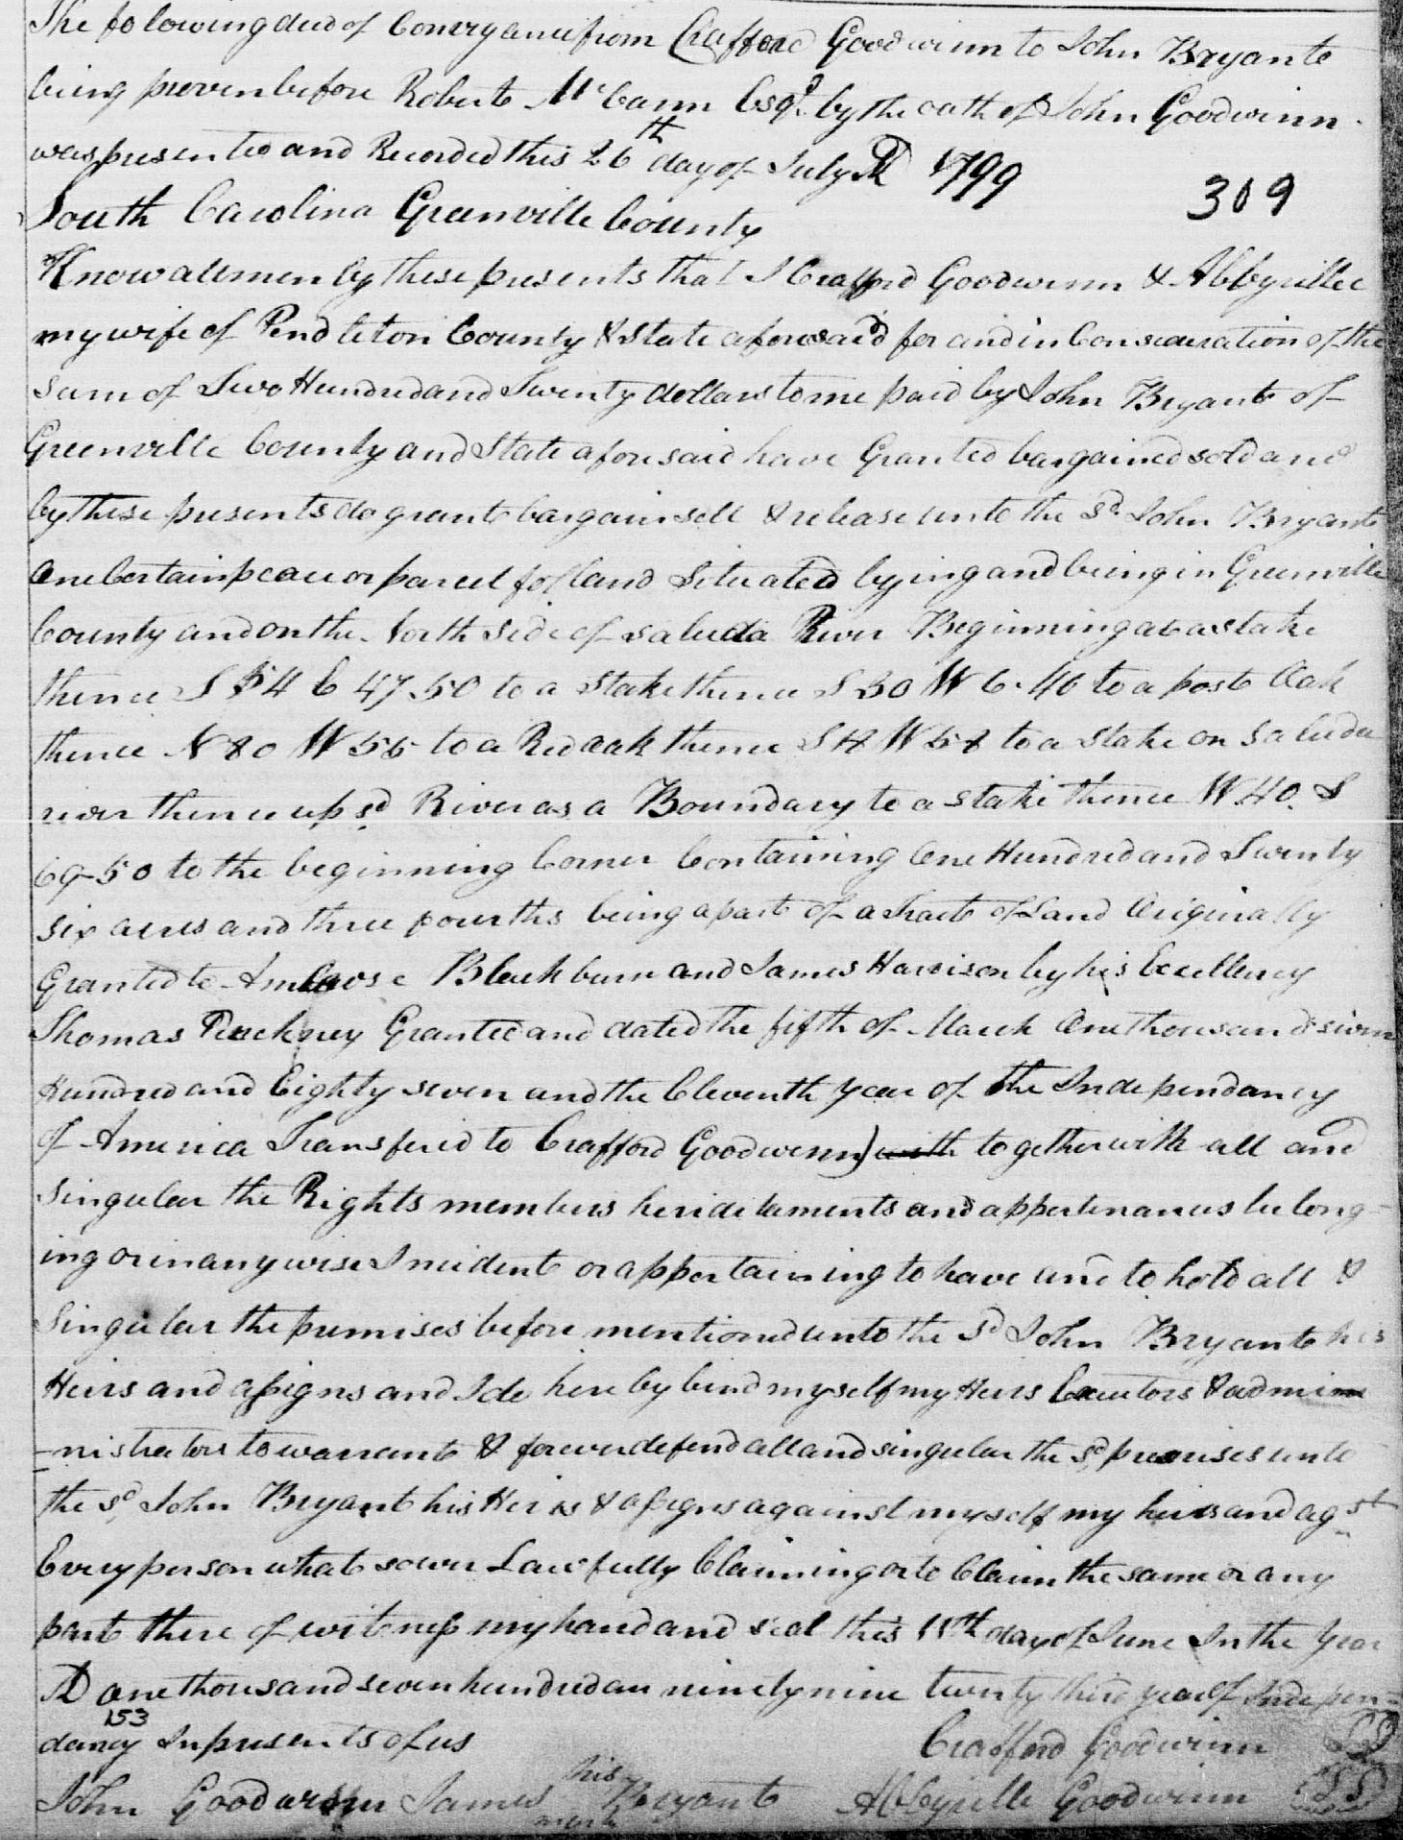 The following deed of Conveyance from Crafford Goodwinn to John Bryant
being proven before Robert McCann Esqr. by the oath of John Goodwinn
was presented and Recorded this 26th day of July AD 1799
309
South Carolina Greenville County
Know all men by these presents that I Crafford Goodwinn & Abbyrille
my wife of Pendleton County & State aforesaid for and in Consideration of the
sum of Two Hundred and Twenty dollars to me paid by John Bryant of
Greenville County and State aforesaid have Granted bargained sold and
by these presents do grant bargain sell & release unto the sd. John Bryant
One Certain peace or parcel of land Situated lying and being in Greenville
County and on the North side of Saluda River Beginning at a stake
thence S 54 E 47.50 to a Stake thence S 30 W 6.40 to a post Oak
thence N 80 W 55 to a Red oak thence S 18 W 58 to a Stake on Saluda
river thence up sd River as a Boundary to a stake thence W 40. S
69-50 to the beginning Corner Containing One Hundred and Twenty
six acres and three fourths being a part of a tract of Land Originally
Granted to Ambrose Blackburn and James Harrison by his Excellency
Thomas Pinckney Granted and dated the fifth of March One thousand seven
Hundred and Eighty seven and the Eleventh year of the Independancy
of America Transfered to Crafford Goodwinn) with together with all and
Singular the Rights members heriditaments and appertenances belong-
ing or in any wise Incident or appertaining to have and to hold all &
Singular the premises before mentioned unto the sd John Bryant his
Heirs and assigns and I do hereby bind myself my Heirs Executors & admin
-nistrators to warrant & forever defend all and singular the sd. premises unto
the sd. John Bryant his Heirs & assigns against myself my heirs and agst
Every person whatsoever Lawfully Claiming or to Claim the same or any
part there of witness my hand and seal this 11th day of June In the Year
AD one thousand seven hundred an ninety nine twenty third year of Indepen-
153
dancy In presents of us Crafford Goodwinn
his
John Goodwinn James Bryant Abbyrille Goodwinn
mark